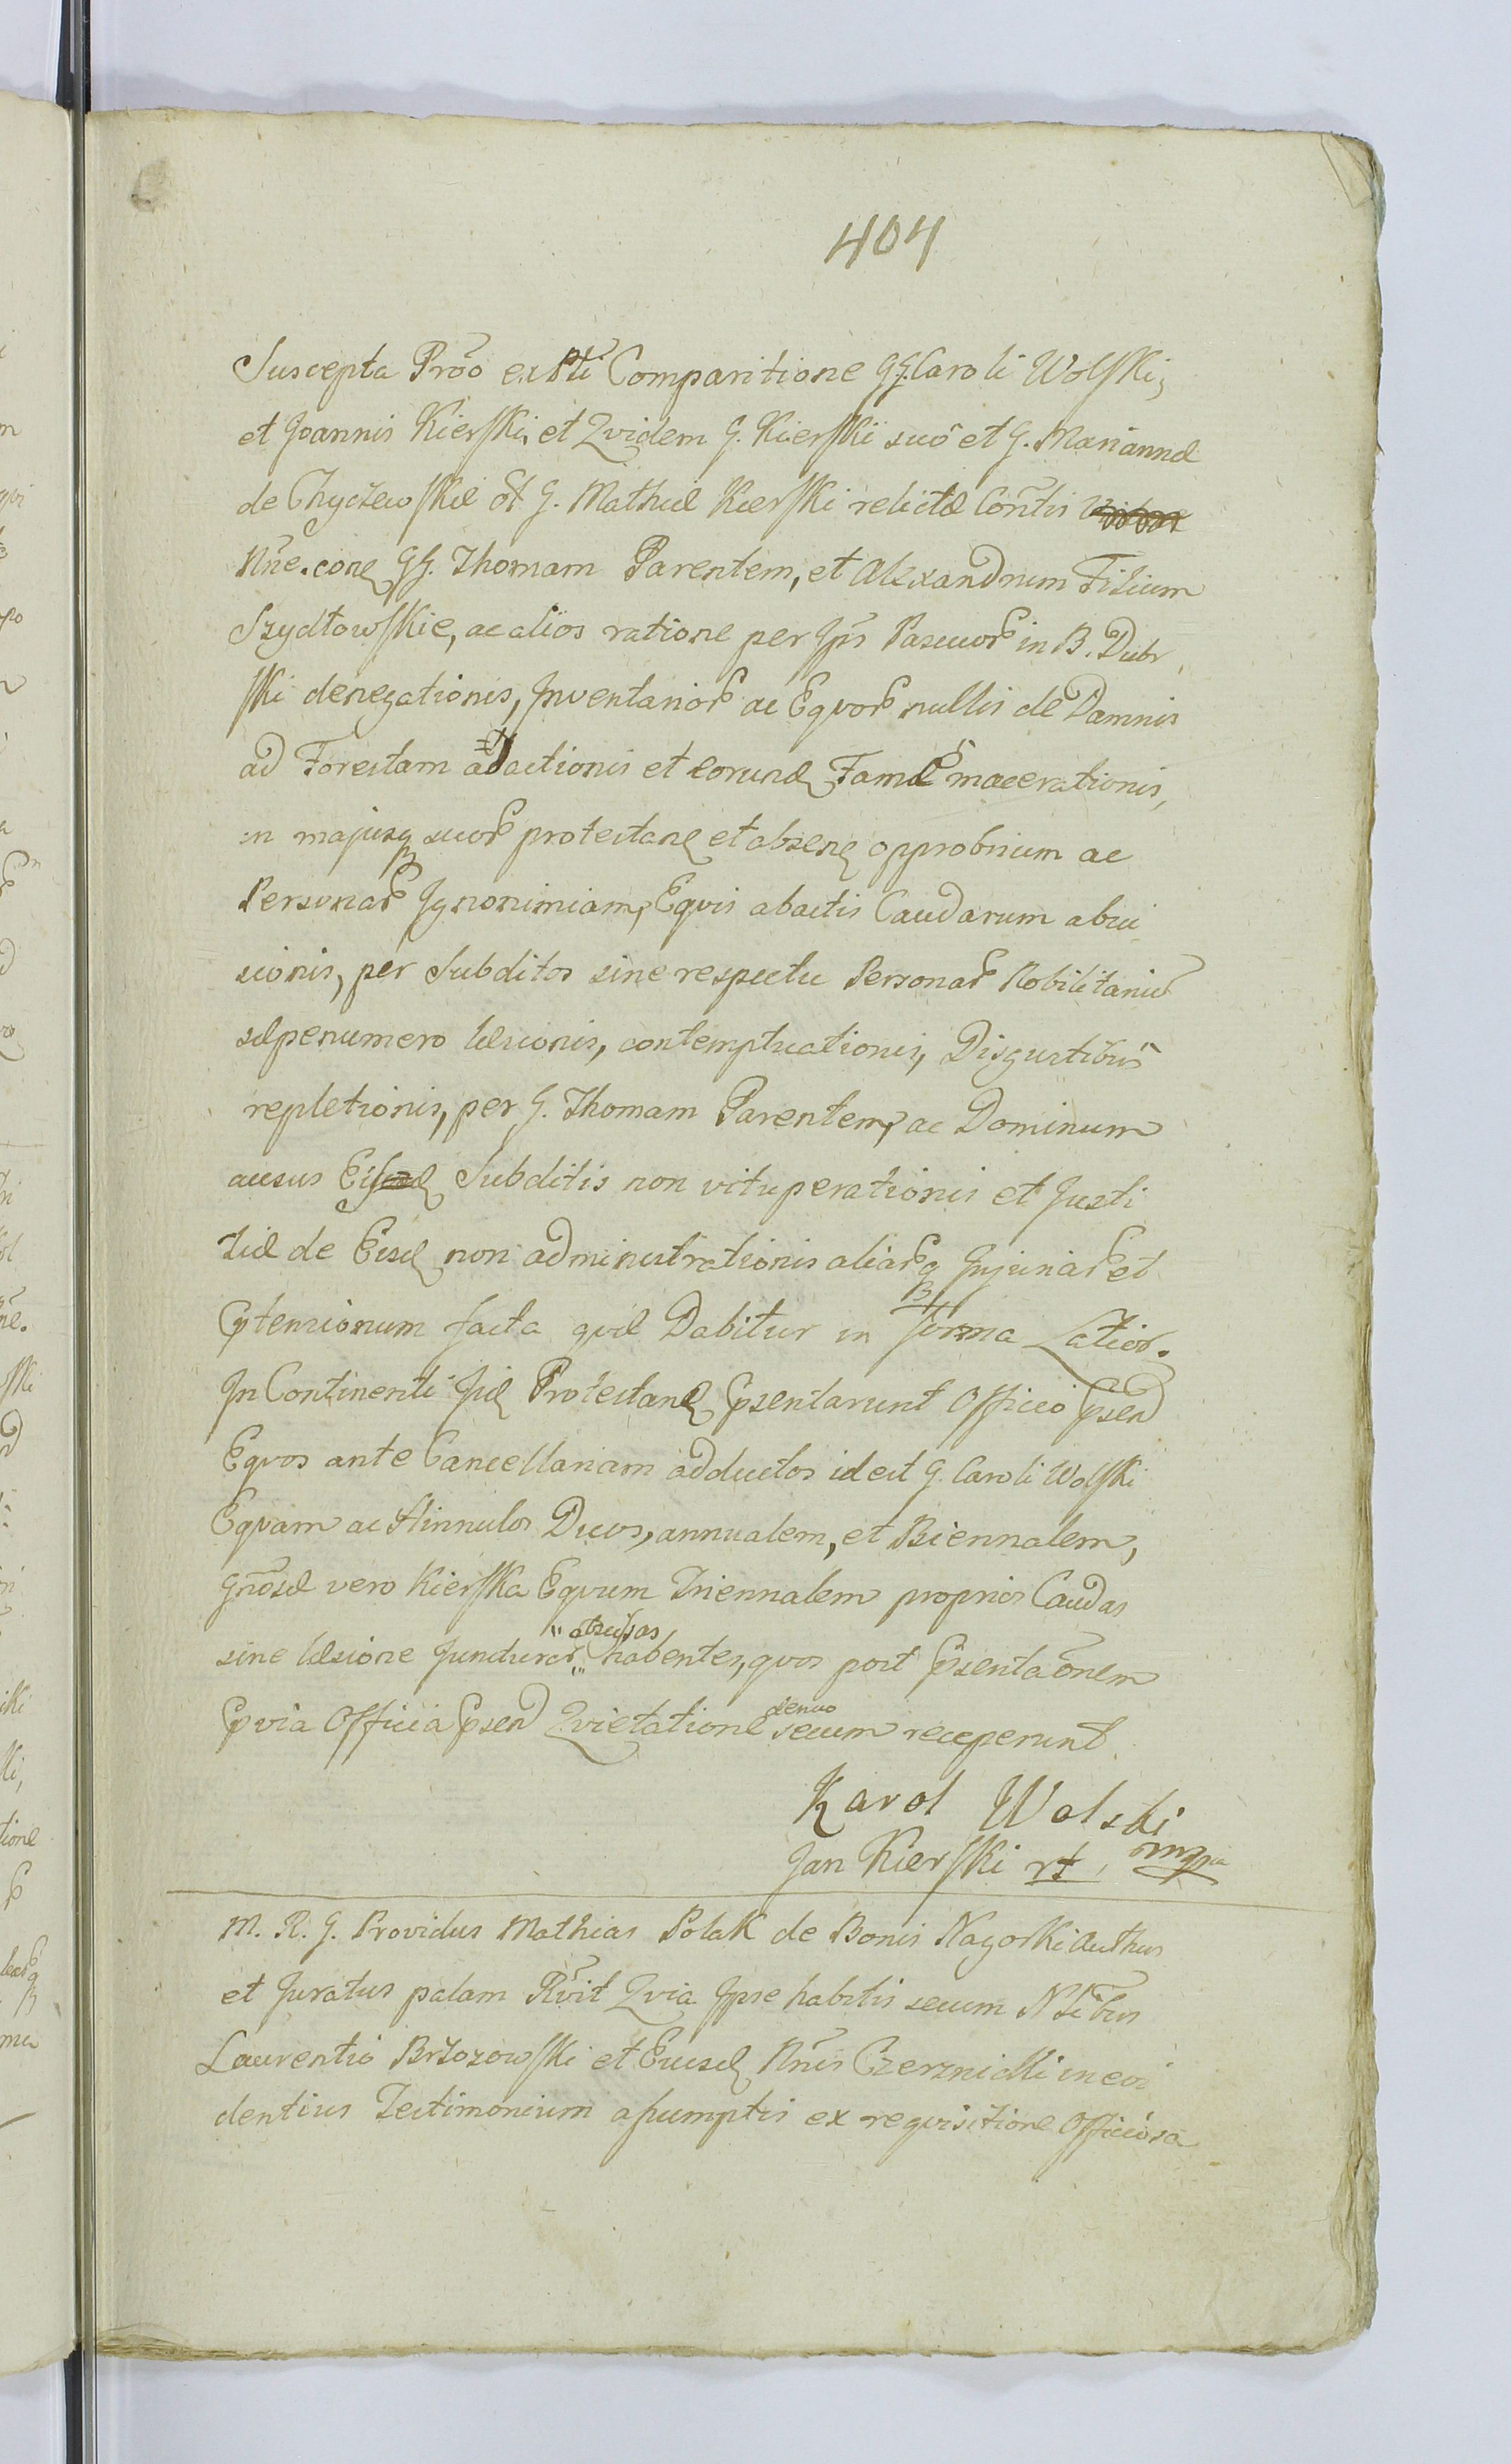 404
Suscepta Prõo ex Pti Comparitione GG. Caroli Wolski,
et Joannis Kierski, et Qvidem G. Kierski suõ et G. Mariannæ
de Chyczewskie õt G. Mathiæ Kierski relictæ Conrtis
Nñe. con GG. Thomam Parentem, et Alexandrum Filium
Szydłowskie, ac alios ratione per Jps Pascuor in B. Dubr
ski denegationis, Inventarior ac Eqvor nullis de Damnis
ad Forestam adactionis et eorund Famæ macerationis,
in majusq suor protestan et absen opprobrium ac
Personar Ignonimiam, Eqvis abactis Caudarum absci
sionis, per Subditos sine respectu Personar Nobilitariũ
sæpenumero læsionis, contemptuationis, Disgustibus
repletionis, per G. Thomam Parentem, ac Dominum
ausus Subditis non vituperationis et Justi
tiæ de Eisd non administrationis aliarq Injuriar et
Ptensionum facta qvæ Dabitur in forma Latior.
In Continenti Jid Protestan Psentarunt Officio Psen
Eqvos ante Cancellariam adductos id est G. Caroli Wolski
Eqvam ac Hinnulos Duos, annualem, et Biennalem,
Gnõsæ vero Kierska Eqvum Triennalem proprios Caudas
sine læsione Juncturar " abscissas " habentes, qvos post Psentaõnem
Pvia Officia Psen Qvietatione denuo secum receperunt
Karol Wolski
Jan Kierski rt, mpa
M. R. G. Providus Mathias Polak de Bonis Nagorki Authus
et Juratus palam Rvit Qvia Ipse habitis secum Ntibus
Laurentio Brzozowski et Eiusd Nñis Czerznicki in evi
dentius Testimonium assumptis ex reqvisitione Officiosa